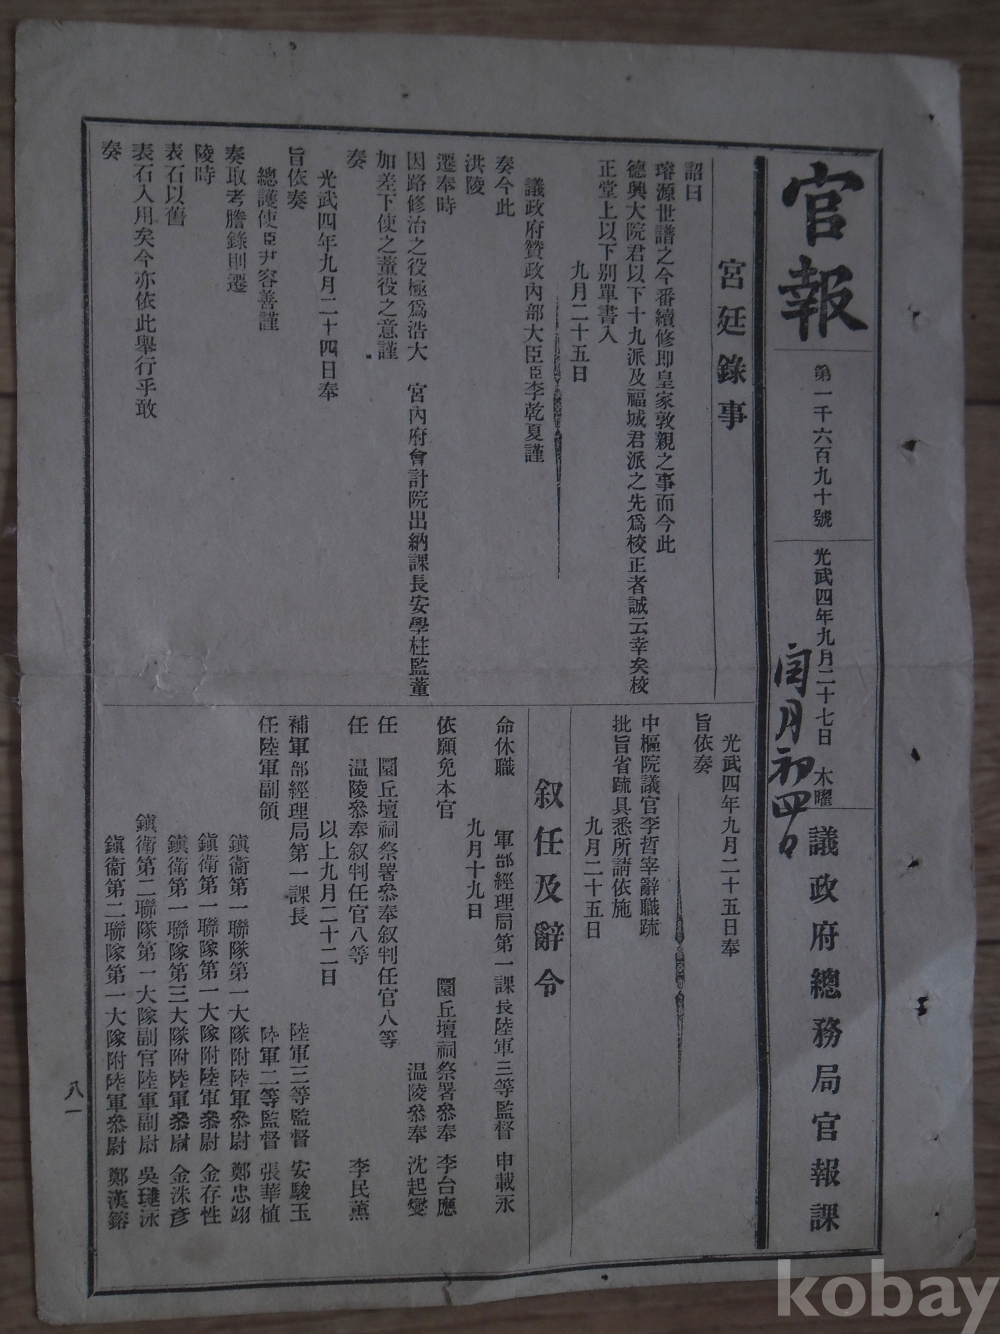 官報
第一千六百九十號
光武四年九月二十七日 木曜
閏月初四日
議政府總務局官報課
宮廷錄事
詔曰
璿源世譜之今番續修即皇家敦親之事而今此
德興大院君以下十九派及福城君派之先爲校正者誠云幸矣校
正堂上以下別單書入
九月二十五日
議政府贊政內部大臣臣李乾夏謹
奏今此
洪陵
遷奉時
因路修治之役極爲浩大 宮內府會計院出納課長安學柱監董
加差下使之董役之意謹
奏
光武四年九月二十四日奉
旨依奏
總護使臣尹容善謹
奏取考謄錄則遷
陵時
表石以舊
表石入用矣今亦依此舉行乎敢
奏
光武四年九月二十五日奉
旨依奏
中樞院議官李哲宰辭職疏
批旨省疏具悉所請依施
九月二十五日
敘任及辭令
命休職 軍部經理局第一課長陸軍三等監督 申載永
九月十九日
依願免本官 圜丘壇祠祭署參奉 李台應
温陵參奉 沈起燮
任 圜丘壇祠祭署參奉敘判任官八等
任 温陵參奉敘判任官八等 李民薰
以上九月二十二日
補軍部經理局第一課長 陸軍三等監督 安駿玉
任陸軍副領 陸軍二等監督 張華植
鎭衛第一聯隊第一大隊附陸軍參尉 鄭忠翊
鎭衛第一聯隊第一大隊附陸軍參尉 金存性
鎭衛第一聯隊第三大隊附陸軍參尉 金洙彥
鎭衛第二聯隊第一大隊副官陸軍副尉 吳璉泳
鎭衛第二聯隊第一大隊附陸軍參尉 鄭漢鎔
八一
kobay